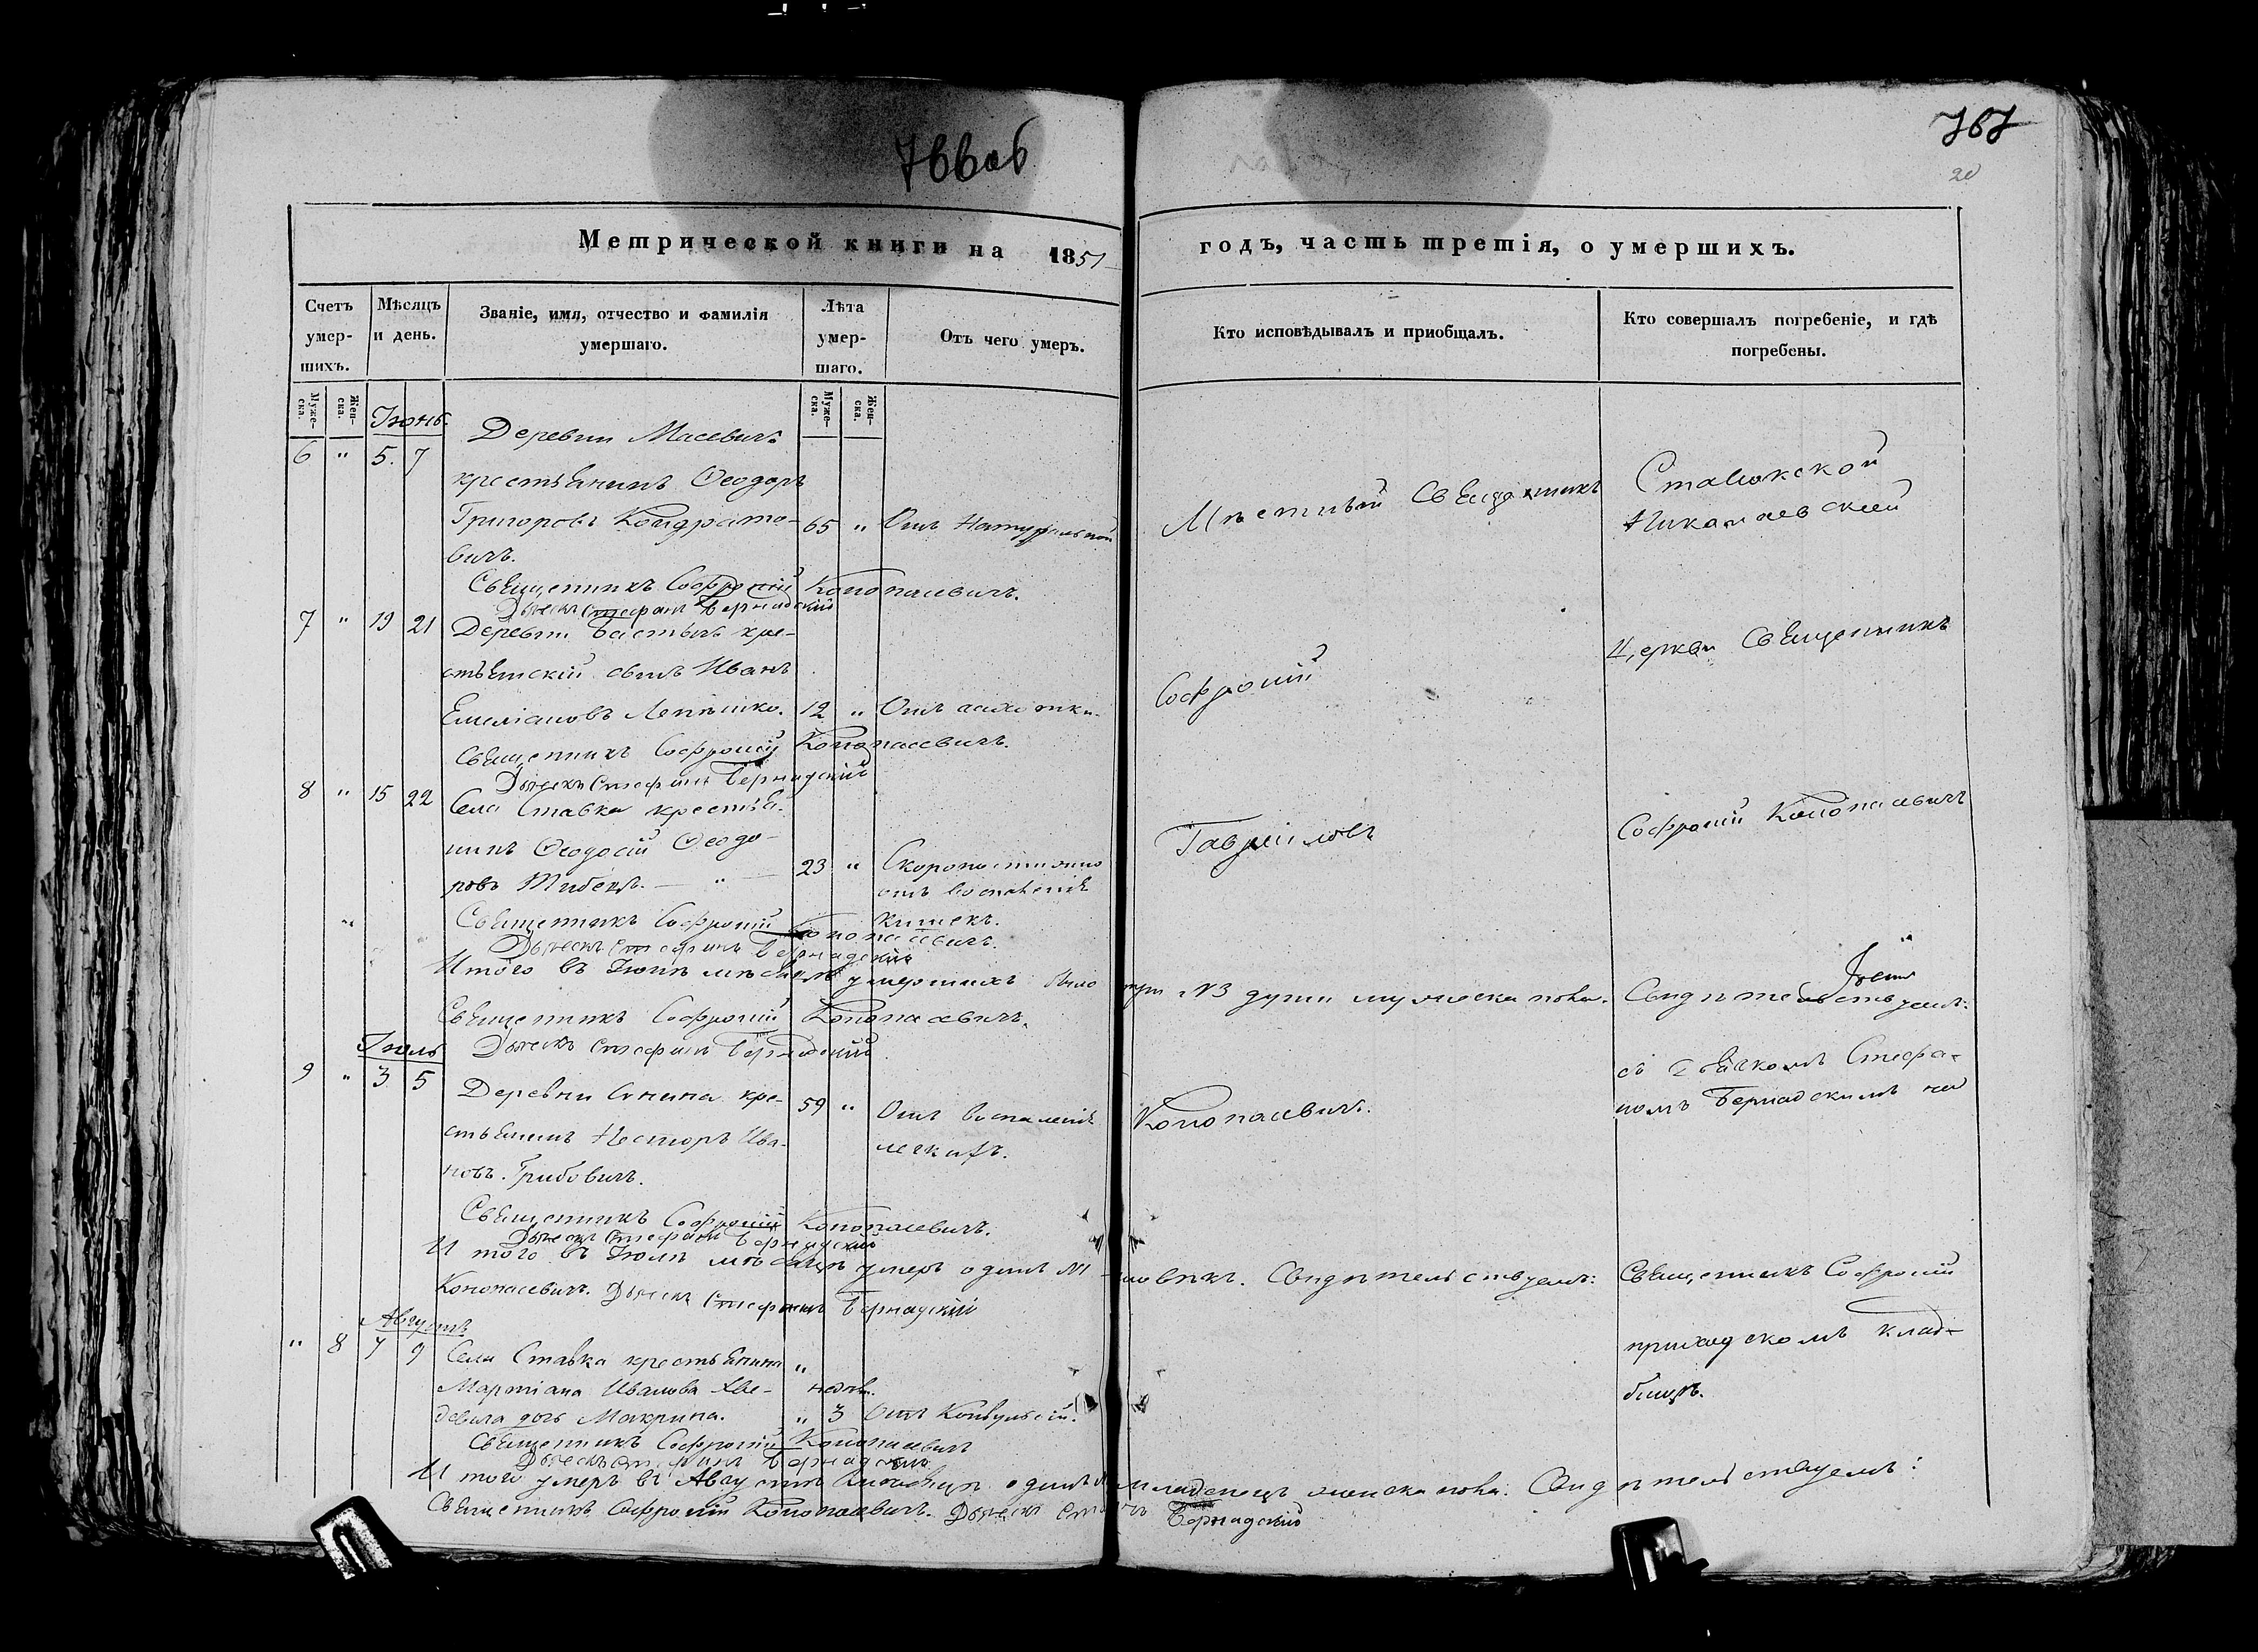 766об
767
20
Метрической книги на 1851
годъ, часть третія, о умершихъ.
Счетъ умер-шихъ.
Мѣсяцъ и день.
Званіе, имя, отчество и фамилія умершаго.
Лѣта умер-шаго.
Отъ чего умеръ.
Кто исповѣдывалъ и приобщалъ.
Кто совершалъ погребеніе, и гдѣ погребены.
Муже-ска.
Жен-ска.
Муже-ска.
Жен-ска.
Іюнь.
6 " 5. 7 Деревни Масевичъ
крестьянинъ Ѳеодоръ
Григоровъ Кондрато- 65 " Отъ Натуральной
вичъ.
Священникъ Софроній Конопасевичъ.
Дьячекъ Стефанъ Бернадскій
7 " 19 21 Деревни кре-
стьянскій сынъ Иванъ
Емеліановъ Лепешко. 12 " Отъ
Священникъ Софроній Конопасевичъ.
Дьячекъ Стефанъ Бернадскій
8 " 15 22 Села Ставка крестья-
нинъ Ѳеодосій Ѳеодо-
ровъ 23 " Скоропостижно
отъ воспаленія
кишекъ.
Священникъ Софроній Конопасевичъ.
Дьячекъ Стефанъ Бернадскій
Итого въ Іюнѣ мѣсяцѣ умершихъ было три №3 души мужеска пола. Свидѣтельствуемъ:
Священникъ Софроній Конопасевичъ.
Дьячекъ Стефанъ Бернадскій
Іюль
9 " 3 5 Деревни кре- 59 " Отъ воспаленія
стьянинъ Несторъ Ива- легкихъ.
новъ Грибовичъ.
Священникъ Софроній Конопасевичъ.
Дьячекъ Стефанъ Бернадскій
Итого въ Іюлѣ мѣсяцѣ умеръ одинъ №1 человѣкъ. Свидѣтельствуемъ: Священникъ Софроній
Конопасевичъ. Дьячекъ Стефанъ Бернадскій
Августъ
" 8 7 9 Села Ставка крестьянина "
Мартіана Иванова недѣл.
дочь Макрина. " 3 Отъ Конвульсій.
Священникъ Софроній Конопасевичъ
Дьячекъ Стефанъ Бернадскій
Итого умеръ въ Августѣ мѣсяцѣ одинъ младенецъ женска пола. Свидѣтельствуемъ:
Священникъ Софроній Конопасевичъ. Дьячекъ Бернадскій
Мѣстный Священникъ
Софроній
Гавриловъ
Конопасевичъ.
Ставокской
Николаевской
Церкви Священникъ
Софроній Конопасевичъ
съ дьячкомъ Стефа-
номъ Бернадскимъ на
приходскомъ клад-
бищѣ.